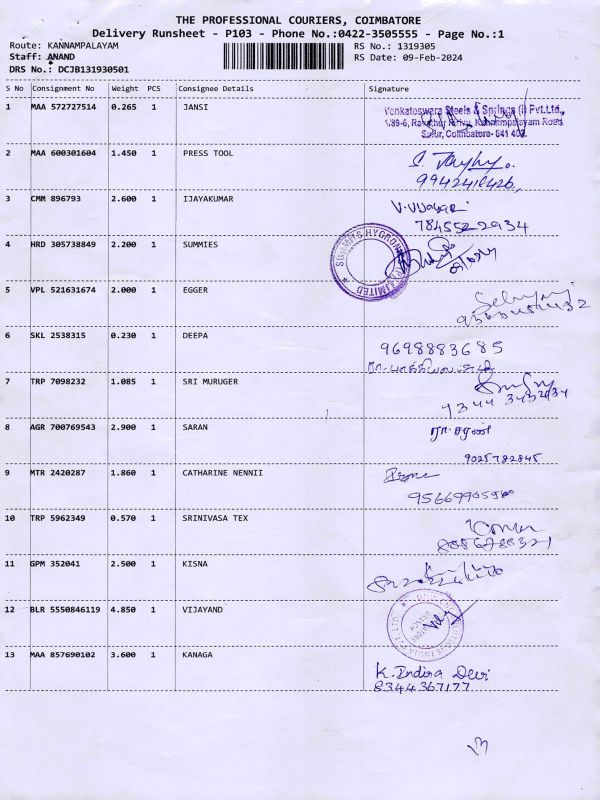 THE PROFESSIONAL COURIERS, COIMBATORE
Delivery Runsheet - P103 - Phone No.:0422-3505555 - Page No.:1
Route: KANNAMPALAYAM RS No.: 1319305
Staff: ANAND RS Date: 09-Feb-2024
DRS No.: DCJB131930501
S No Consignment No Weight PCS Consignee Details Signature
1 MAA 572727514 0.265 1 JANSI
Venkateswara Steels & Springs (I) Pvt.Ltd.,
Sulur, Coimbatore- 641 402.
2 MAA 600301604 1.450 1 PRESS TOOL
3 CMM 896793 2.600 1 IJAYAKUMAR
7845522934
4 HRD 305738849 2.200 1 SUMMIES
SUMMITS HYGRONICS LIMITED
5 VPL 521631674 2.000 1 EGGER
6 SKL 2538315 0.230 1 DEEPA
9698883685
7 TRP 7098232 1.085 1 SRI MURUGER
8 AGR 700769543 2.900 1 SARAN
ரா.சரண்
9025782845
9 MTR 2420287 1.860 1 CATHARINE NENNII
10 TRP 5962349 0.570 1 SRINIVASA TEX
11 GPM 352041 2.500 1 KISNA
12 BLR 5550846119 4.850 1 VIJAYAND
13 MAA 857690102 3.600 1 KANAGA
K. Indira Devi
8344367177